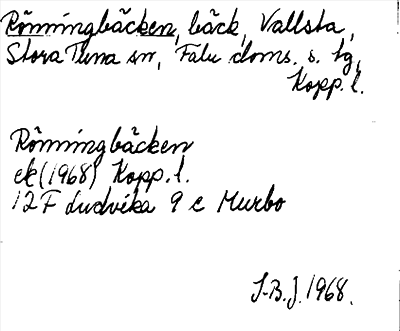 Rönningbäcken, bäck, Vallsta,
Stora Tuna sn, Falu doms. s. tg,
Kopp. l.
Rönningbäcken
ek (1968) Kopp. l.
12 F Ludvika 9 c Murbo
S.B.J. 1968.